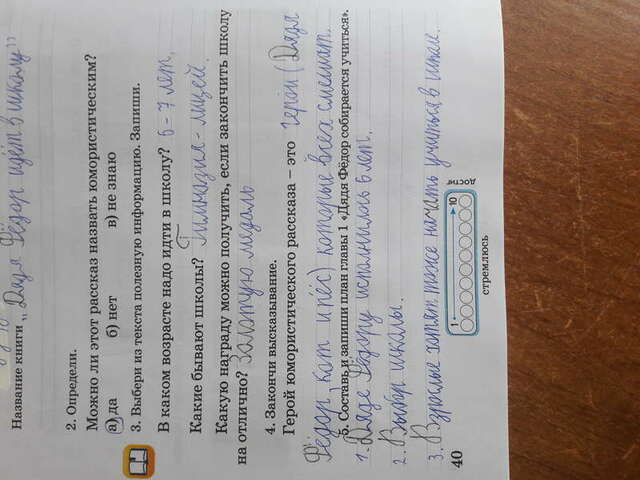 Название книги „Дядя Фёдор идёт в школу"
2. Определи.
Можно ли этот рассказ назвать юмористическим?
а) да б) нет в) не знаю
3. Выбери из текста полезную информацию. Запиши.
В каком возрасте надо идти в школу? 6-7 лет.
Какие бывают школы? Гимназия - лицей.
Какую награду можно получить, если закончить школу
на отлично? Золотую медаль
4. Закончи высказывание.
Герой юмористического рассказа – это герои (Дядя
Фёдор, кот и пёс) которые всех смешат.
5. Составь и запиши план главы 1 «Дядя Фёдор собирается учиться».
1. Дяде Фёдору исполнилось 6 лет.
2. Выбор школы.
3. Взрослые хотят тоже начать учиться в школе.
40
1 10
достиг
стремлюсь